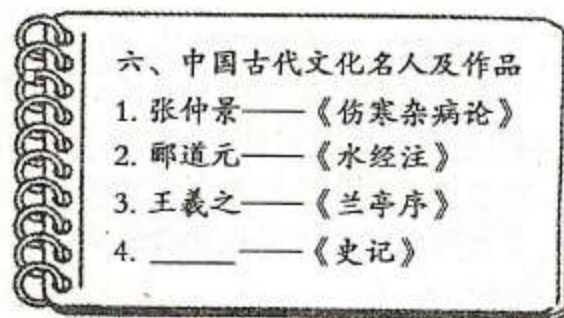 六、中国古代文化名人及作品
1. 张仲景——《伤寒杂病论》
2. 郦道元——《水经注》
3. 王羲之——《兰亭序》
4. ______——《史记》